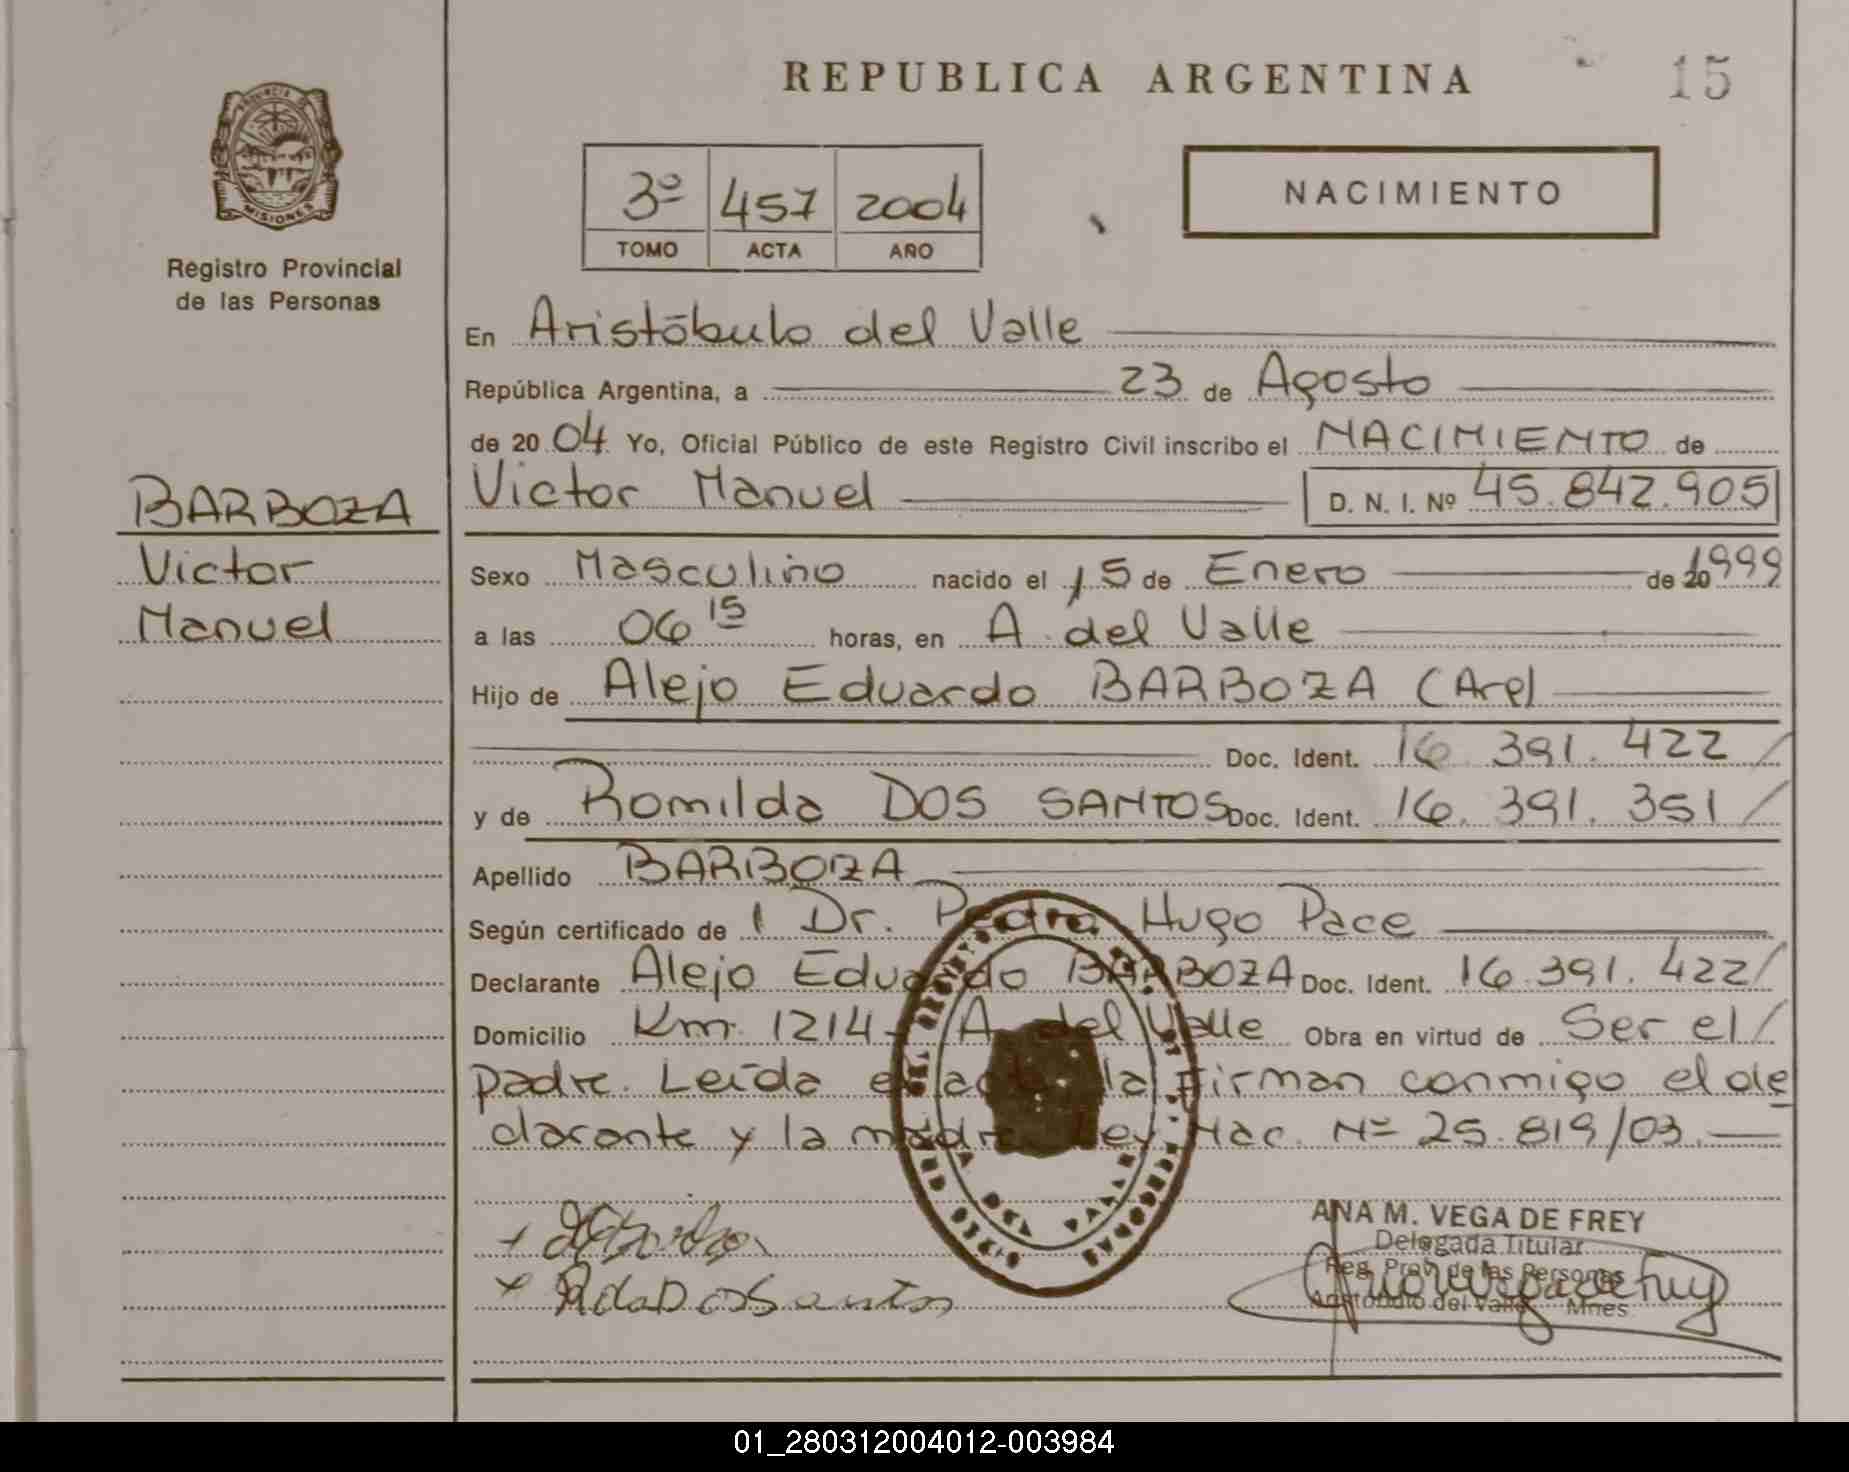 REPUBLICA ARGENTINA
15
PROVINCIA DE
MISIONES
Registro Provincial
de las Personas
3º 457 2004
TOMO ACTA AÑO
NACIMIENTO
En Aristóbulo del Valle
República Argentina, a 23 de Agosto
de 20 04 Yo, Oficial Público de este Registro Civil inscribo el NACIMIENTO de
Victor Manuel D. N. I. Nº 45.842.905
BARBOZA
Victor
Manuel
Sexo Masculino nacido el 15 de Enero de 20 1999
a las 06 15 horas, en A. del Valle
Hijo de Alejo Eduardo BARBOZA (Arg)
Doc. Ident. 16.391.422/
y de Romilda DOS SANTOS Doc. Ident. 16.391.351/
Apellido BARBOZA
Según certificado de 1 Dr. Pedro Hugo Pace
Declarante Alejo Eduardo BARBOZA Doc. Ident. 16.391.422/
Domicilio Km. 1214- A. del Valle Obra en virtud de Ser el/
padre. Leída el acta la firman conmigo el de
clarante y la madre Ley Nac. Nº 25.819/03.—
DEL VALLE
ANA M. VEGA DE FREY
Delegada Titular
Reg. Prov. de las Personas
Aristóbulo del Valle Mnes
+ RdaDosSantos
01_280312004012-003984